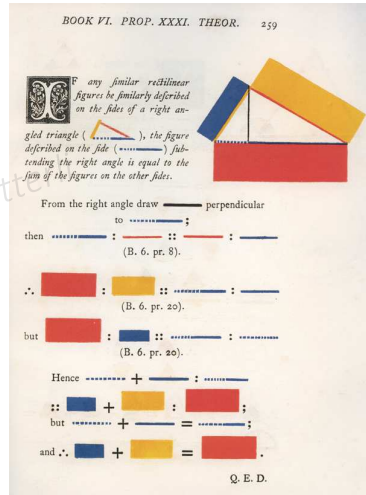 BOOK VI. PROP. XXXI. THEOR. 259
IF any ſimilar rectilinear
figures be ſimilarly deſcribed
on the ſides of a right an-
gled triangle ( ), the figure
deſcribed on the ſide ( ) ſub-
tending the right angle is equal to the
ſum of the figures on the other ſides.
From the right angle draw perpendicular
to ;
then : :: :
(B. 6. pr. 8).
∴ : :: :
(B. 6. pr. 20).
but : :: :
(B. 6. pr. 20).
Hence + :
:: + : ;
but + = ;
and ∴ + = .
Q. E. D.